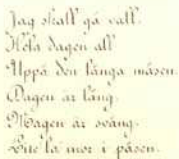 Jag skall gå vall.
Hela dagen all
Uppå den långa måsen.
Dagen är lång.
Magen är svång.
Lite la mor i påsen.